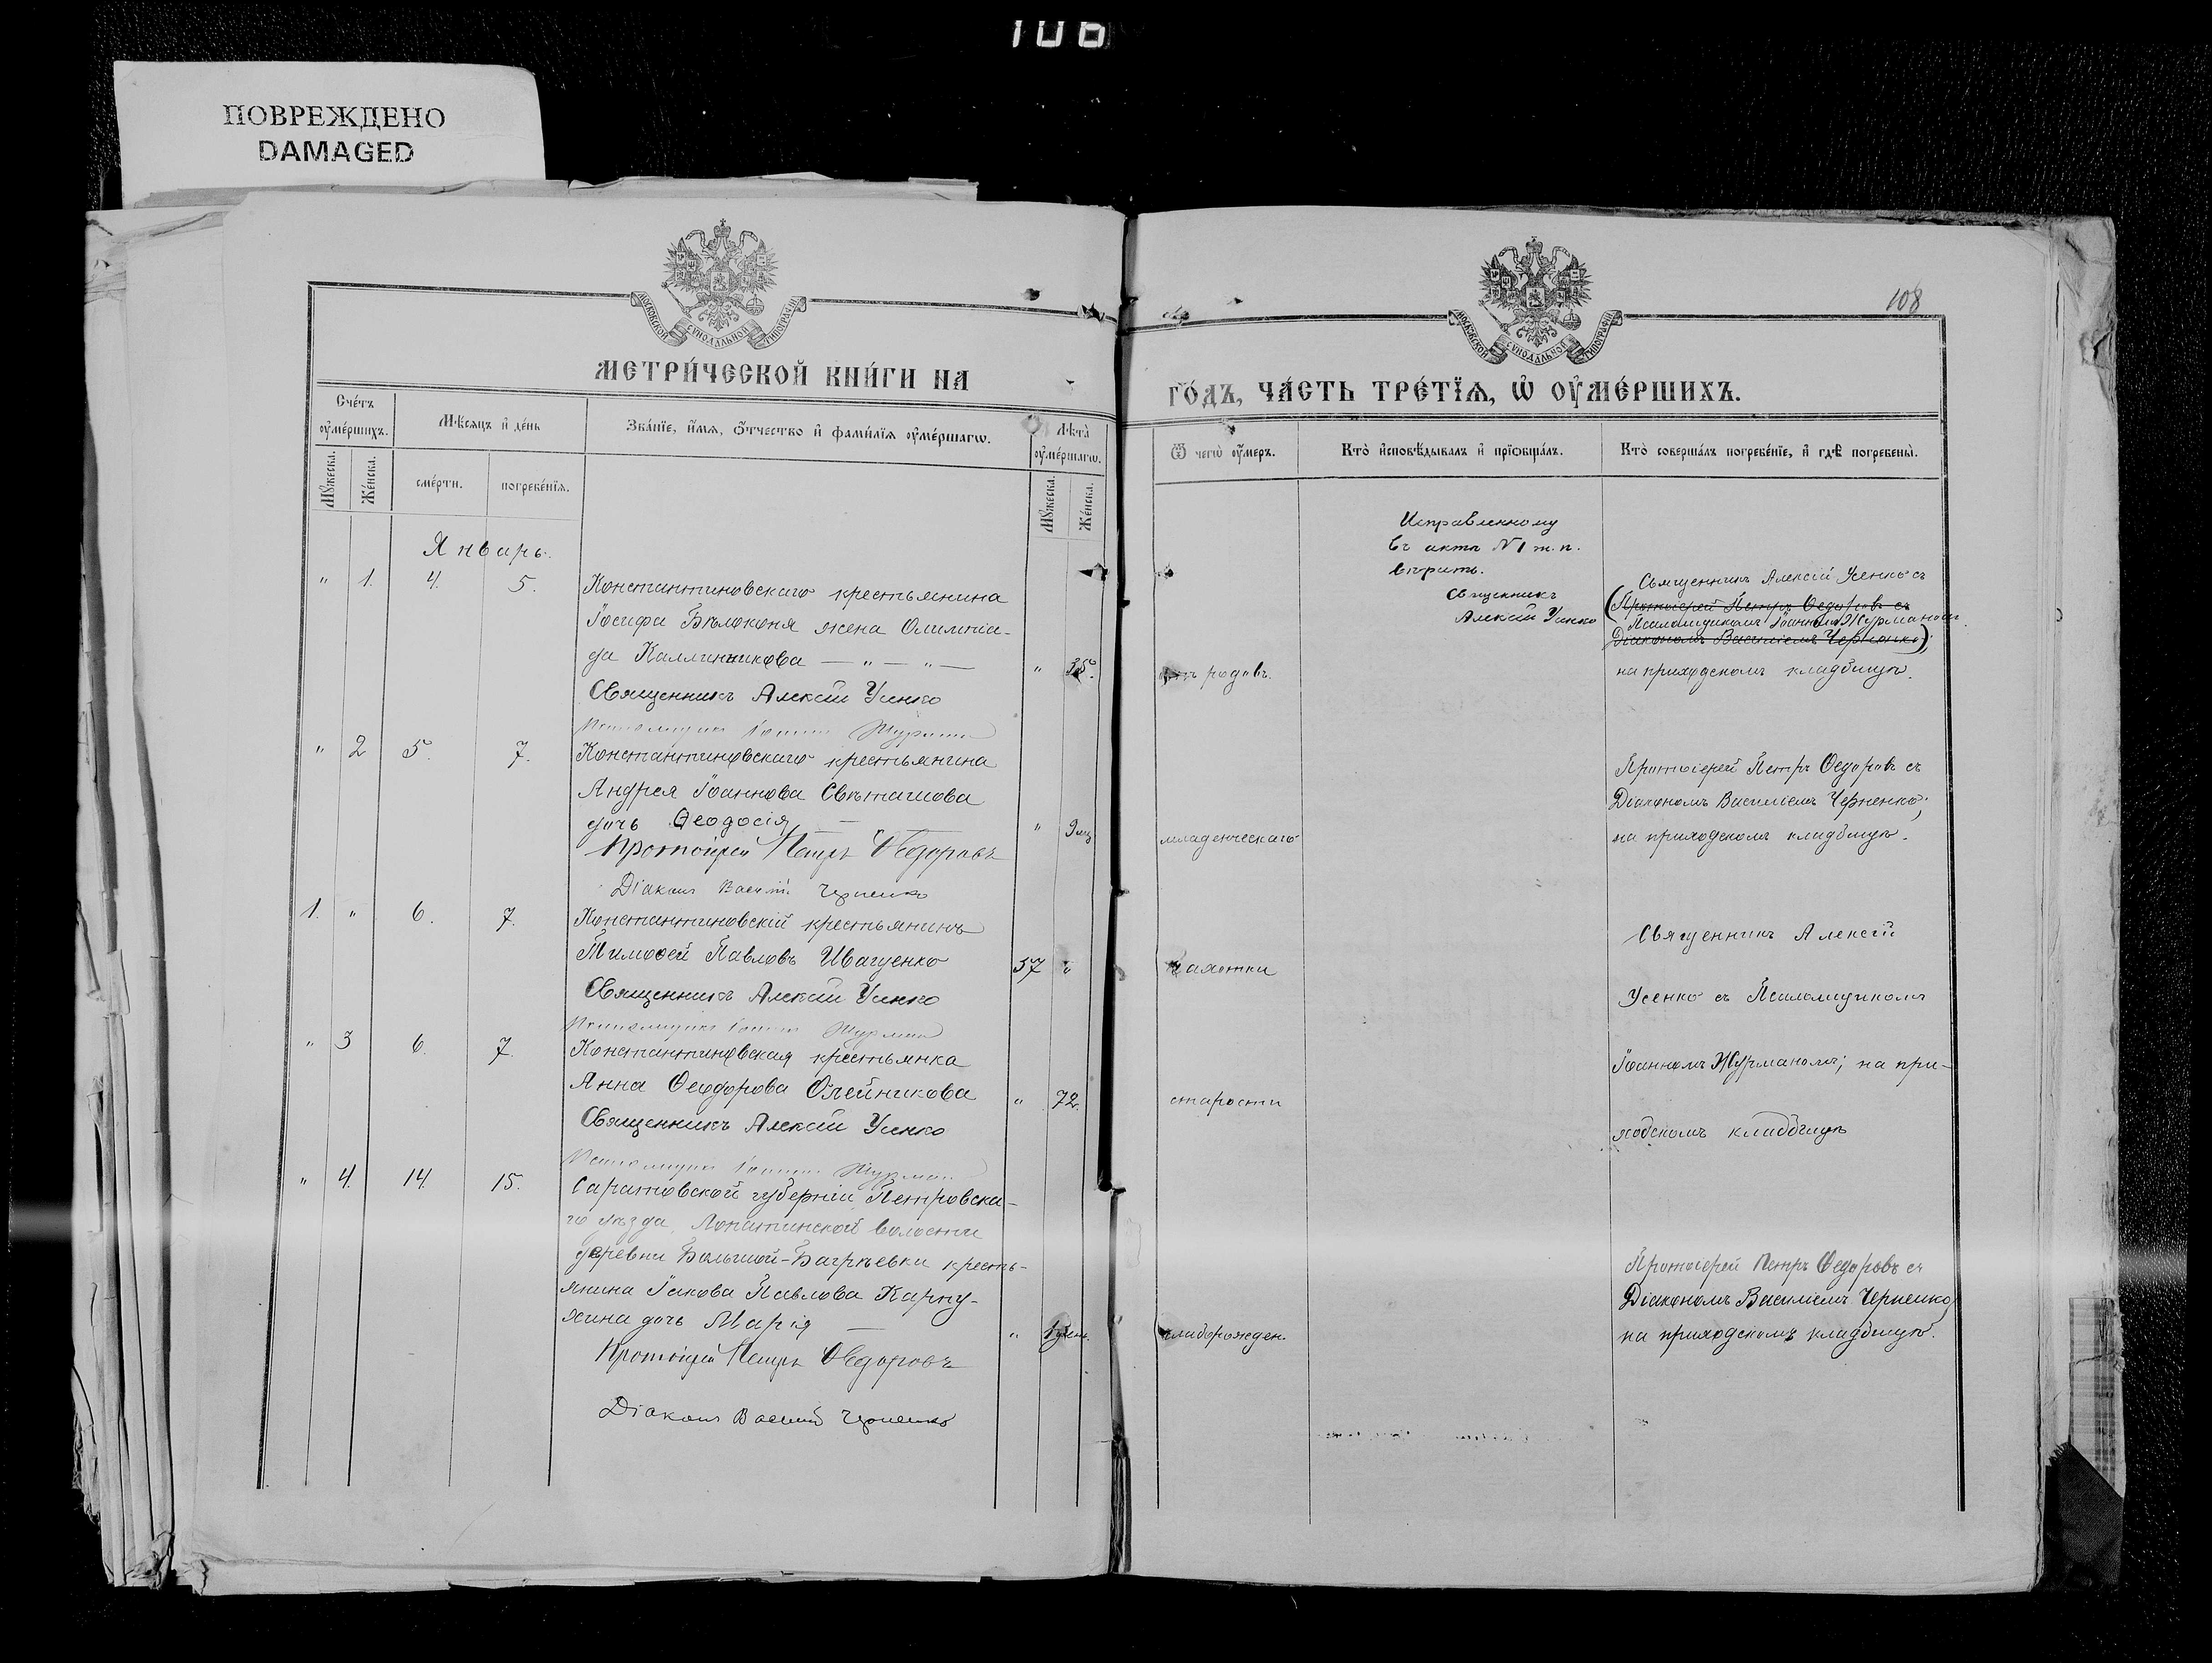 106
ПОВРЕЖДЕНО
DAMAGED
МОСКОВСКОЙ СѴНОДАЛЬНОЙ ТИПОГРАФІИ
МЕТРИ́ЧЕСКОЙ КНИ́ГИ НА
Сче́тъ оу҆ме́ршихъ.
Мѣ́сяцъ и҆ де́нь
Зва́нїе, и҆́мѧ, ѻ҆́тчество и҆ фами́лїѧ оу҆ме́ршагѡ.
Лѣта̀ оу҆ме́ршагѡ.
Мꙋ́жеска.
Же́нска.
сме́рти.
погребе́нїѧ.
Мꙋ́жеска.
Же́нска.
Январь.
" 1. 4. 5. Константиновскаго крестьянина
Іосифа Бѣлоконя жена Олимпіа-
да Каллинникова — " — " — " 35.
Священникъ Алексій Усенко
Псаломщикъ Іоаннъ Журманъ
" 2 5. 7. Константиновскаго крестьянина
Андрея Іоаннова Свѣташова
дочь Ѳеодосія — " 9 мц
Протоіерей Петръ Ѳедоровъ
Діаконъ Василій Черненко
1. " 6. 7. Константиновскій крестьянинъ
Тимоѳей Павловъ Иващенко 57 "
Священникъ Алексій Усенко
Псаломщикъ Іоаннъ Журманъ
" 3 6. 7. Константиновская крестьянка
Анна Ѳеодорова Олейникова " 72.
Священникъ Алексій Усенко
Псаломщикъ Іоаннъ Журманъ
" 4. 14. 15. Саратовской губерніи Петровска-
го уѣзда, Лопатинской волости
деревни Большой-Багрѣевки кресть-
янина Іакова Павлова Карпу-
хина дочь Марія — " 1 день.
Протоіерей Петръ Ѳедоровъ
Діаконъ Василій Черненко
МОСКОВСКОЙ СѴНОДАЛЬНОЙ ТИПОГРАФІИ
108
ГО́ДЪ, ЧА́СТЬ ТРЕ́ТЇѦ, Ѡ҆ ОУ҆МЕ́РШИХЪ.
Ѿ чегѡ̀ оу҆́меръ.
Кто̀ и҆сповѣ́дывалъ и҆ прїѡбща́лъ.
Кто̀ соверша́лъ погребе́нїе, и҆ гдѣ̀ погребены̀.
Исправленному
въ актѣ № 1 т. п.
вѣрить.
Священникъ
Алексій Усенко
Священникъ Алексій Усенко съ
(Протоіерей Петръ Ѳедоровъ съ
Псаломщикомъ Іоанномъ Журманомъ.
Діакономъ Василіемъ Черненко);
отъ родовъ. на приходскомъ кладбищѣ.
Протоіерей Петръ Ѳедоровъ съ
Діакономъ Василіемъ Черненко;
младенческаго на приходскомъ кладбищѣ.
Священникъ Алексій
чахотки
Усенко съ Псаломщикомъ
Іоанномъ Журманомъ; на при-
старости
ходскомъ кладбищѣ
Протоіерей Петръ Ѳедоровъ съ
Діакономъ Василіемъ Черненко
слаборожден. на приходскомъ кладбищѣ.